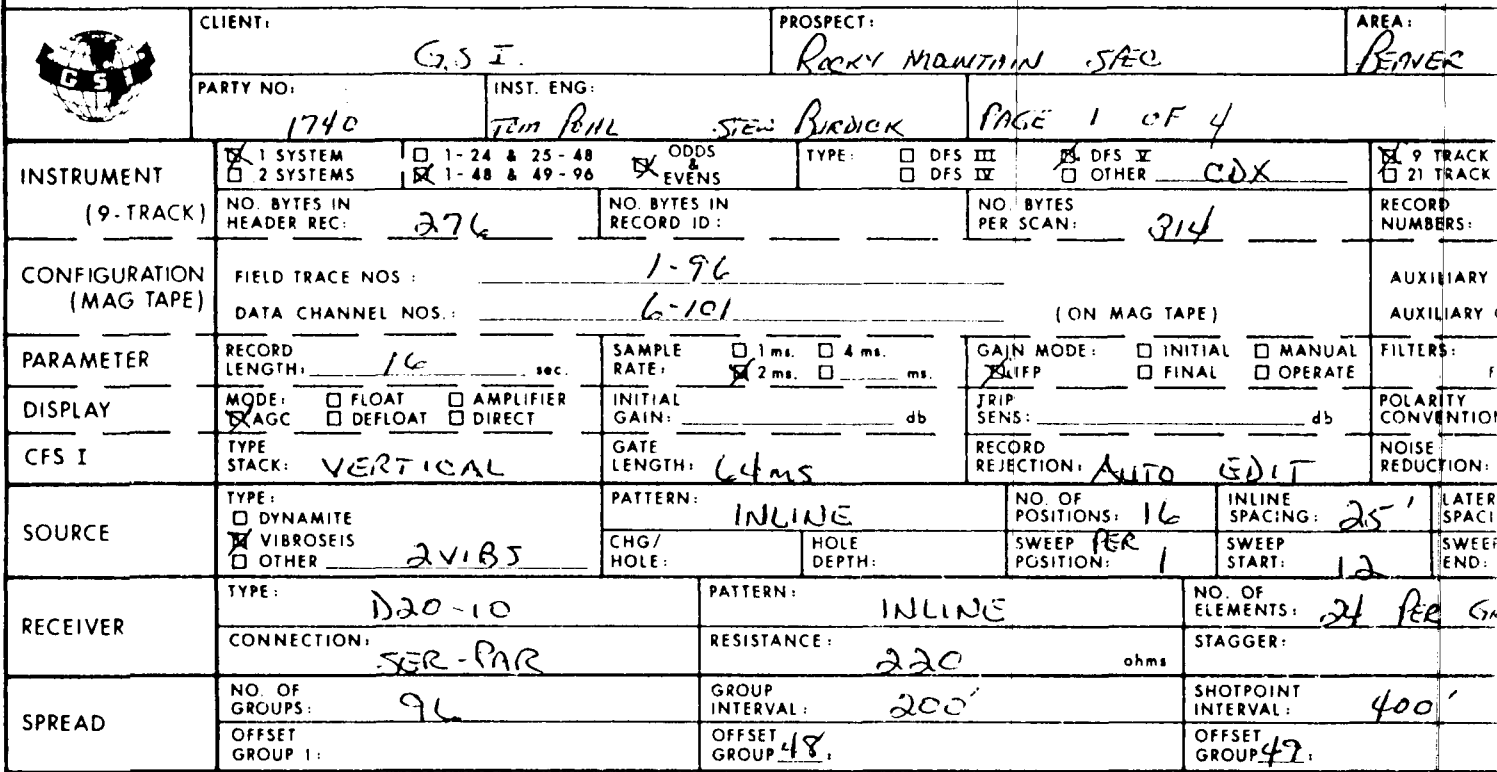 CLIENT: G.S I. PROSPECT: ROCKY MOUNTAIN SPEC AREA: BEAVER
GSI
PARTY NO: 1740 INST. ENG: TOM POHL STEW BURDICK PAGE 1 OF 4
INSTRUMENT (9-TRACK)
☒ 1 SYSTEM ☐ 1-24 & 25-48 ☒ ODDS & EVENS TYPE: ☐ DFS III ☒ DFS V ☒ 9 TRACK
☐ 2 SYSTEMS ☒ 1-48 & 49-96 ☐ DFS IV ☐ OTHER CDX ☐ 21 TRACK
NO. BYTES IN HEADER REC: 276 NO. BYTES IN RECORD ID: NO. BYTES PER SCAN: 314 RECORD NUMBERS:
CONFIGURATION (MAG TAPE)
FIELD TRACE NOS : 1-96 AUXILIARY
DATA CHANNEL NOS.: 6-101 (ON MAG TAPE) AUXILIARY
PARAMETER
RECORD LENGTH: 16 sec. SAMPLE RATE: ☐ 1 ms. ☐ 4 ms. ☒ 2 ms. ☐ ms. GAIN MODE: ☐ INITIAL ☐ MANUAL ☒ IFP ☐ FINAL ☐ OPERATE FILTERS:
DISPLAY
MODE: ☐ FLOAT ☐ AMPLIFIER ☒ AGC ☐ DEFLOAT ☐ DIRECT INITIAL GAIN: db TRIP SENS: db POLARITY CONVENTION
CFS I
TYPE STACK: VERTICAL GATE LENGTH: 64ms RECORD REJECTION: AUTO EDIT NOISE REDUCTION:
SOURCE
TYPE: ☐ DYNAMITE ☒ VIBROSEIS ☐ OTHER 2 VIBS
PATTERN: INLINE NO. OF POSITIONS: 16 INLINE SPACING: 25' LATER SPACI
CHG/ HOLE: HOLE DEPTH: SWEEP PER POSITION: 1 SWEEP START: 12 SWEEP END:
RECEIVER
TYPE: D20-10 PATTERN: INLINE NO. OF ELEMENTS: 24 PER GR
CONNECTION: SER-PAR RESISTANCE: 220 ohms STAGGER:
SPREAD
NO. OF GROUPS: 96 GROUP INTERVAL: 200' SHOTPOINT INTERVAL: 400'
OFFSET GROUP 1: OFFSET GROUP 48: OFFSET GROUP 49: